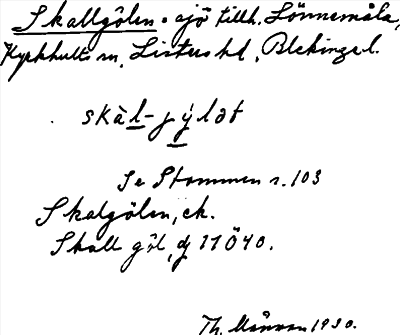 Skallgölen = sjö tillh. Lönnemåla,
Kyrkhults sn, Listers hd, Blekinge l.
skàl-jýlət
Se Stommen s. 103
Skalgölen, ek.
Skall göl, dj 11Ö40.
Th. 1930.